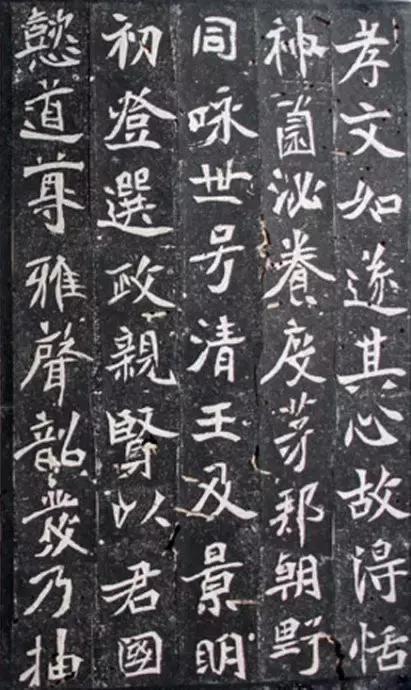 孝文如遂其心故得恬
神薗泌養度茅邦朝野
同咏世号清王及景明
初登選政親賢以君國
懿道尊雅聲韶發乃抽